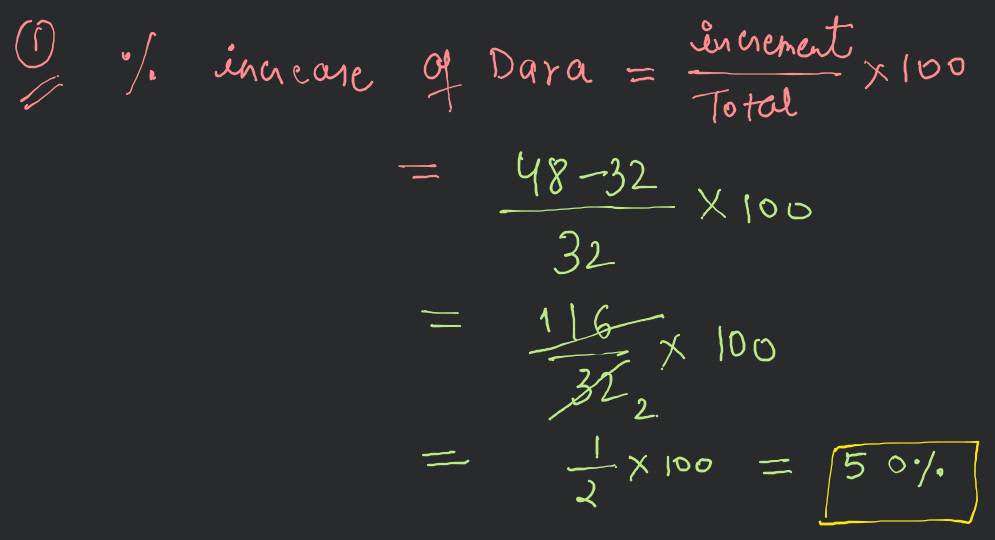 ① % increase of Dara = increment/Total × 100
= 48-32/32 × 100
= 1 16/32 2 × 100
= 1/2 × 100 = 50%